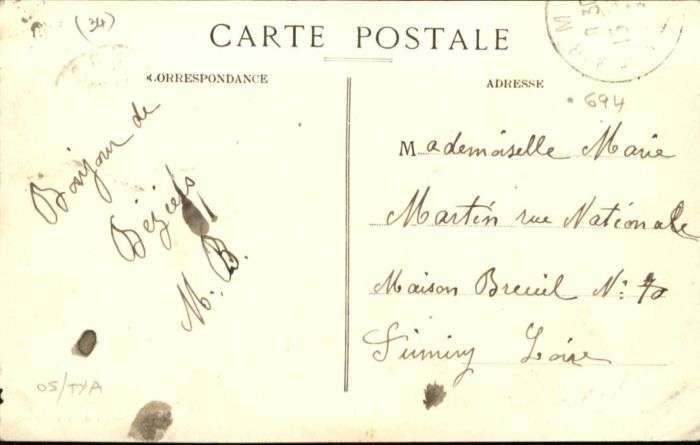 (34)
CARTE POSTALE
CORRESPONDANCE
ADRESSE
694
Bonjour de
Béziers
M. B.
Mademoiselle Marie
Martin rue Nationale
Maison Breuil N:
Firminy Loire
OS/TYA